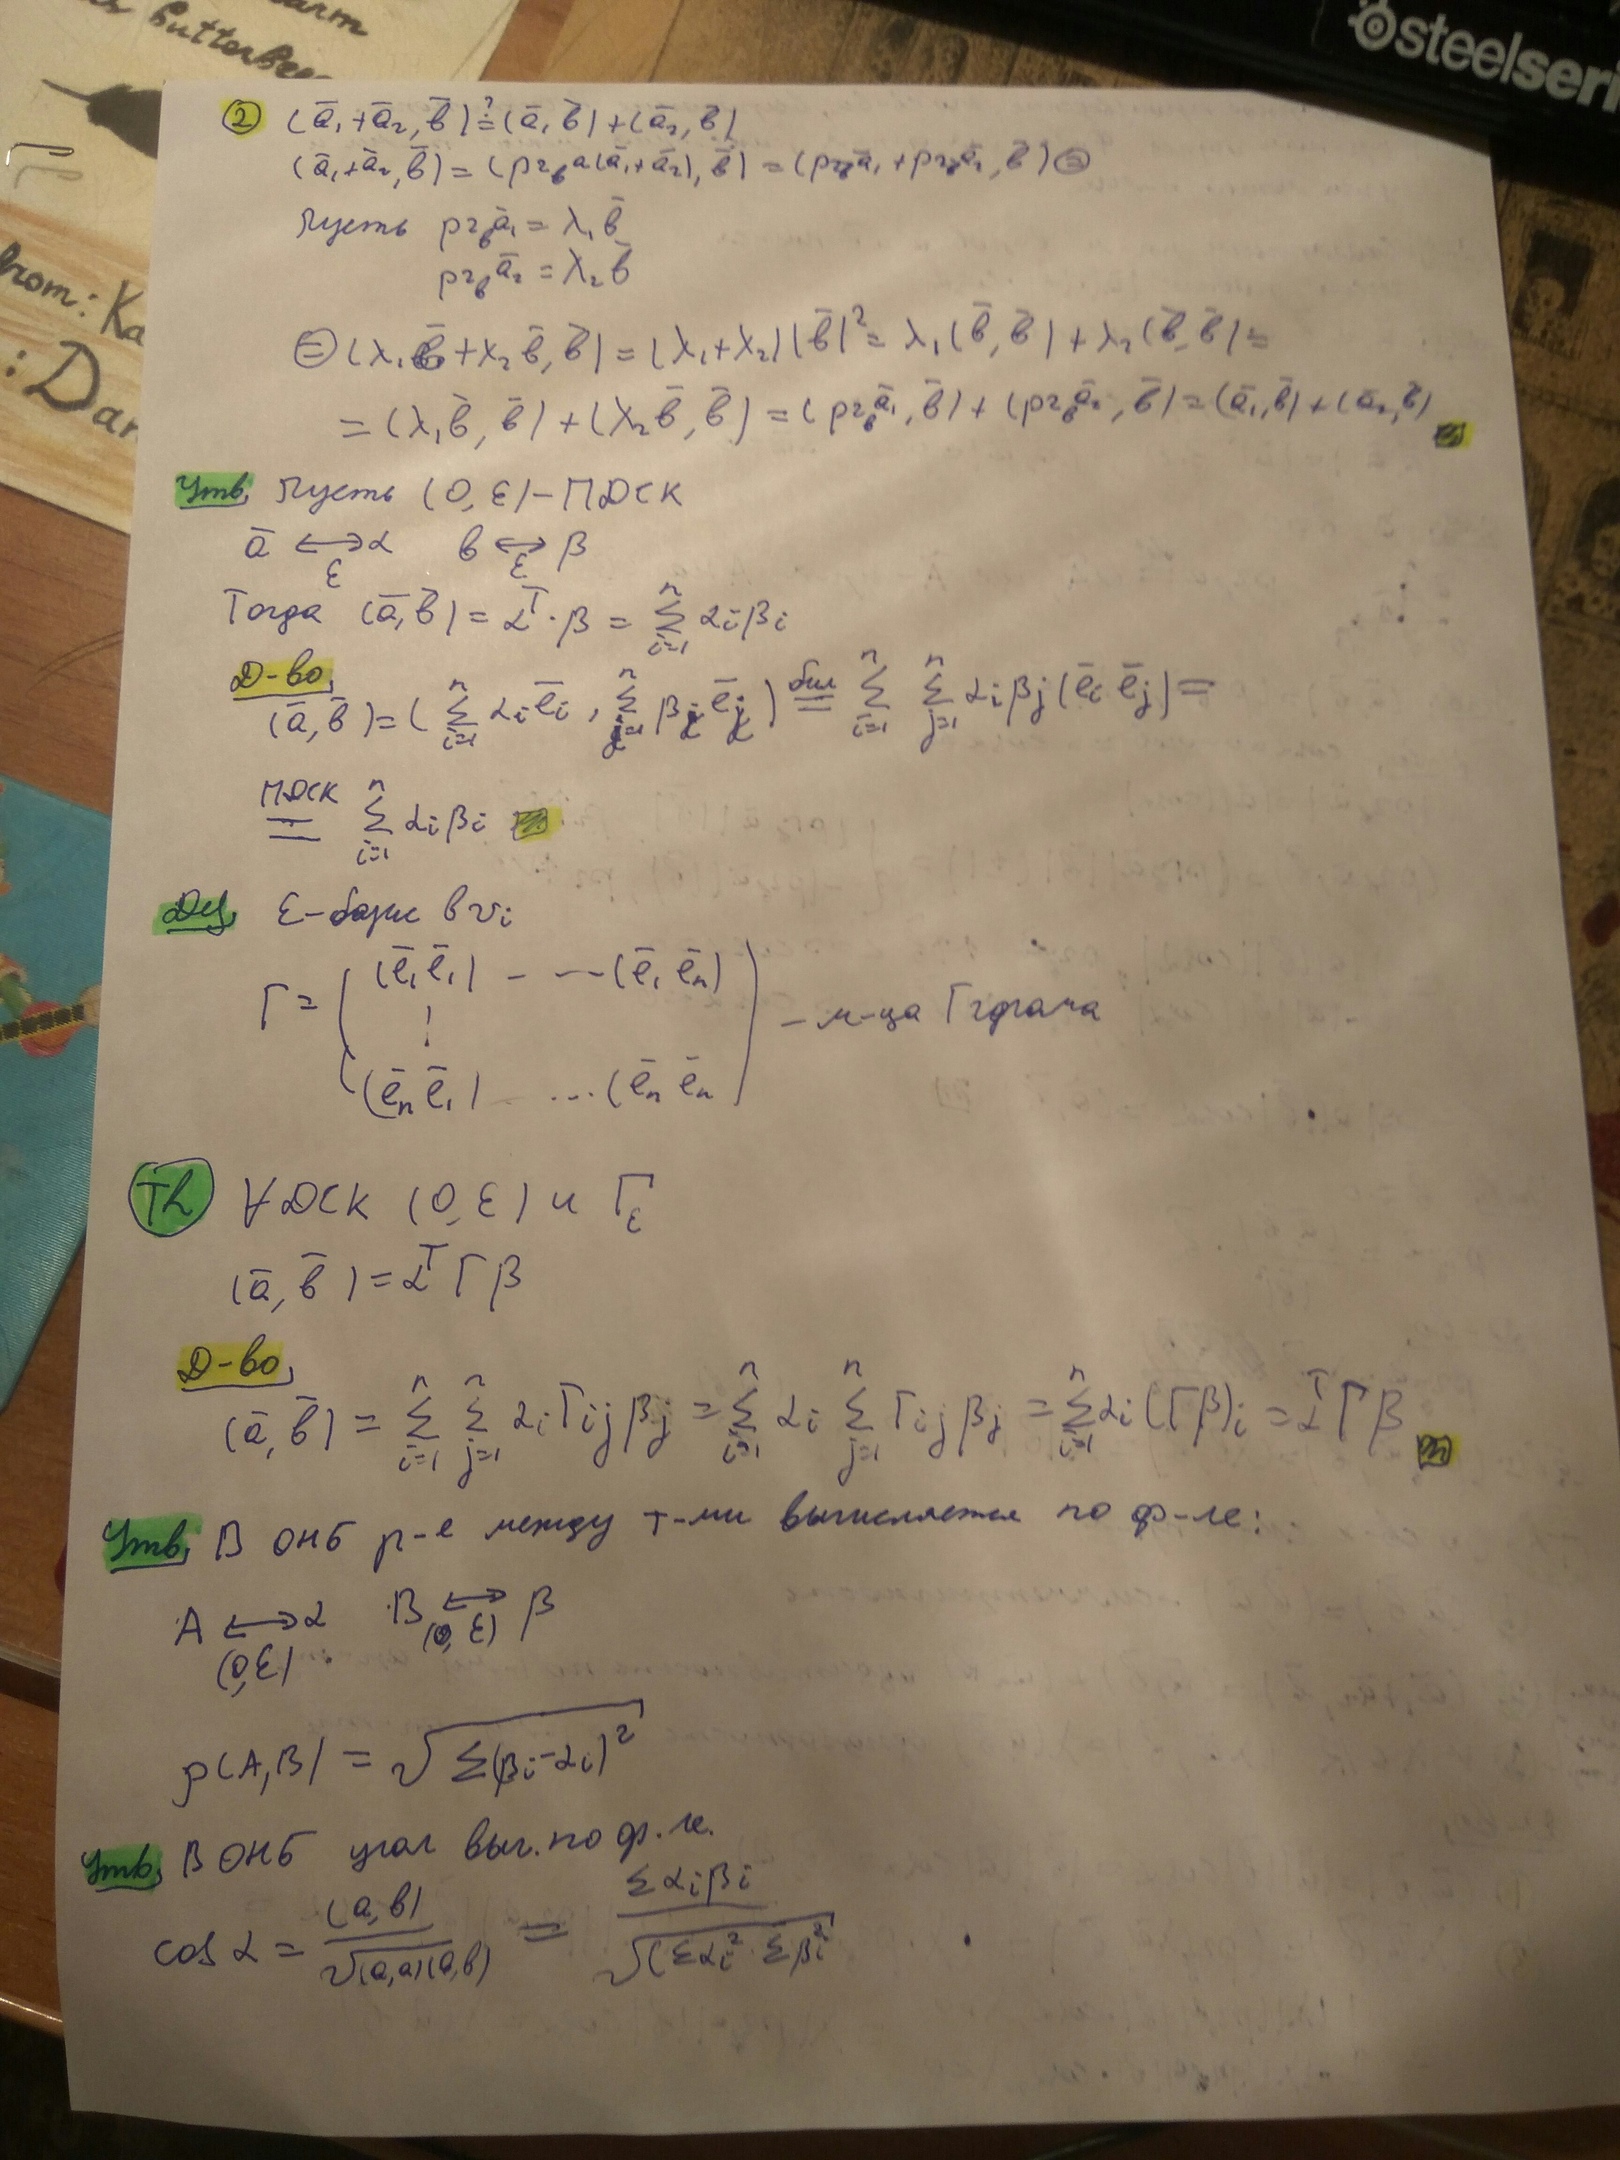 arm
butterbee
steelseri
from: Ka
: Dar
② (ā₁+ā₂, b̄) ≟ (ā₁ b̄) + (ā₂, b̄)
(ā₁+ā₂, b̄) = (pr_b a(ā₁+ā₂), b̄) = (pr_b ā₁ + pr_b ā₂, b̄) ⊜
Пусть pr_b ā₁ = λ₁ b̄
pr_b ā₂ = λ₂ b̄
⊜ (λ₁ b̄ + λ₂ b̄, b̄) = (λ₁+λ₂) |b̄|² = λ₁(b̄, b̄) + λ₂(b̄, b̄) =
= (λ₁ b̄, b̄) + (λ₂ b̄, b̄) = (pr_b ā₁, b̄) + (pr_b ā₂, b̄) = (ā₁, b̄) + (ā₂, b̄)
Утв, Пусть (O, ε) – ПДСК
ā ⟷_ε α в ⟷_ε β
Тогда (ā, b̄) = αᵀ · β = Σ_{i=1}^{n} αᵢβᵢ
Д-во,
(ā, b̄) = (Σ_{i=1}^{n} αᵢ ēᵢ, Σ_{j=1}^{n} βⱼ ēⱼ) =^{бил} Σ_{i=1}^{n} Σ_{j=1}^{n} αᵢβⱼ(ēᵢ ēⱼ) =
=^{ПДСК} Σ_{i=1}^{n} αᵢβᵢ
Def, ε – базис в vᵢ
Γ = ( (ē₁ ē₁) - --- (ē₁ ēₙ)
⋮
(ēₙ ē₁) ... (ēₙ ēₙ ) – м-ца Гграма
Th ∀ ДСК (O, ε) и Γ_ε
(ā, b̄) = αᵀ Γ β
Д-во,
(ā, b̄) = Σ_{i=1}^{n} Σ_{j=1}^{n} αᵢ Γᵢⱼ βⱼ = Σ_{i=1}^{n} αᵢ Σ_{j=1}^{n} Γᵢⱼ βⱼ = Σ_{i=1}^{n} αᵢ (Γβ)ᵢ = αᵀ Γ β
Утв, В ОНБ р-е между т-ми вычисляется по ф-ле:
A ⟷_{(O,ε)} α B ⟷_{(O,ε)} β
ρ(A,B) = √(Σ(βᵢ-αᵢ)²)
Утв, В ОНБ угол выч. по ф.ле.
cos α = (a, b) / √((a,a)(a,b)) = Σαᵢβᵢ / √(Σαᵢ² · Σβᵢ²